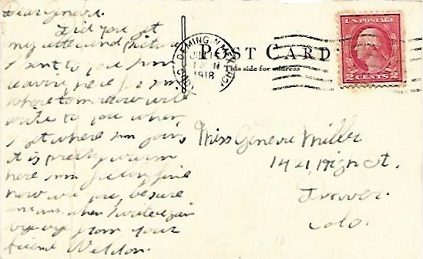 Dear Genevie.
Did you get
my letter and picture
I sent to you from
leaving here for
where tomorrow will
write to you when
I get where going
it is pretty warm
here am feeling fine
how are you, be sure
answer when I write again
bye bye from your
friend Weldon.
DEMING, N. MEX.
1918
POST CARD
This side for address
U.S. POSTAGE
2 CENTS 2
Miss Genevie Miller
1421 High St.
Denver.
Colo.